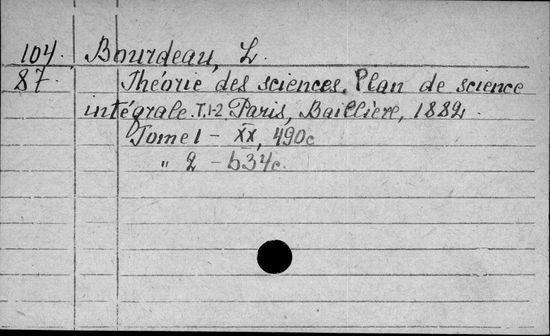 104. Bourdeau, L.
87. Théorie des sciences. Plan de science
intégrale. T.1-2 Paris, Baillière, 1882.
Tome 1 – XX, 490c
„ 2 – 634c.